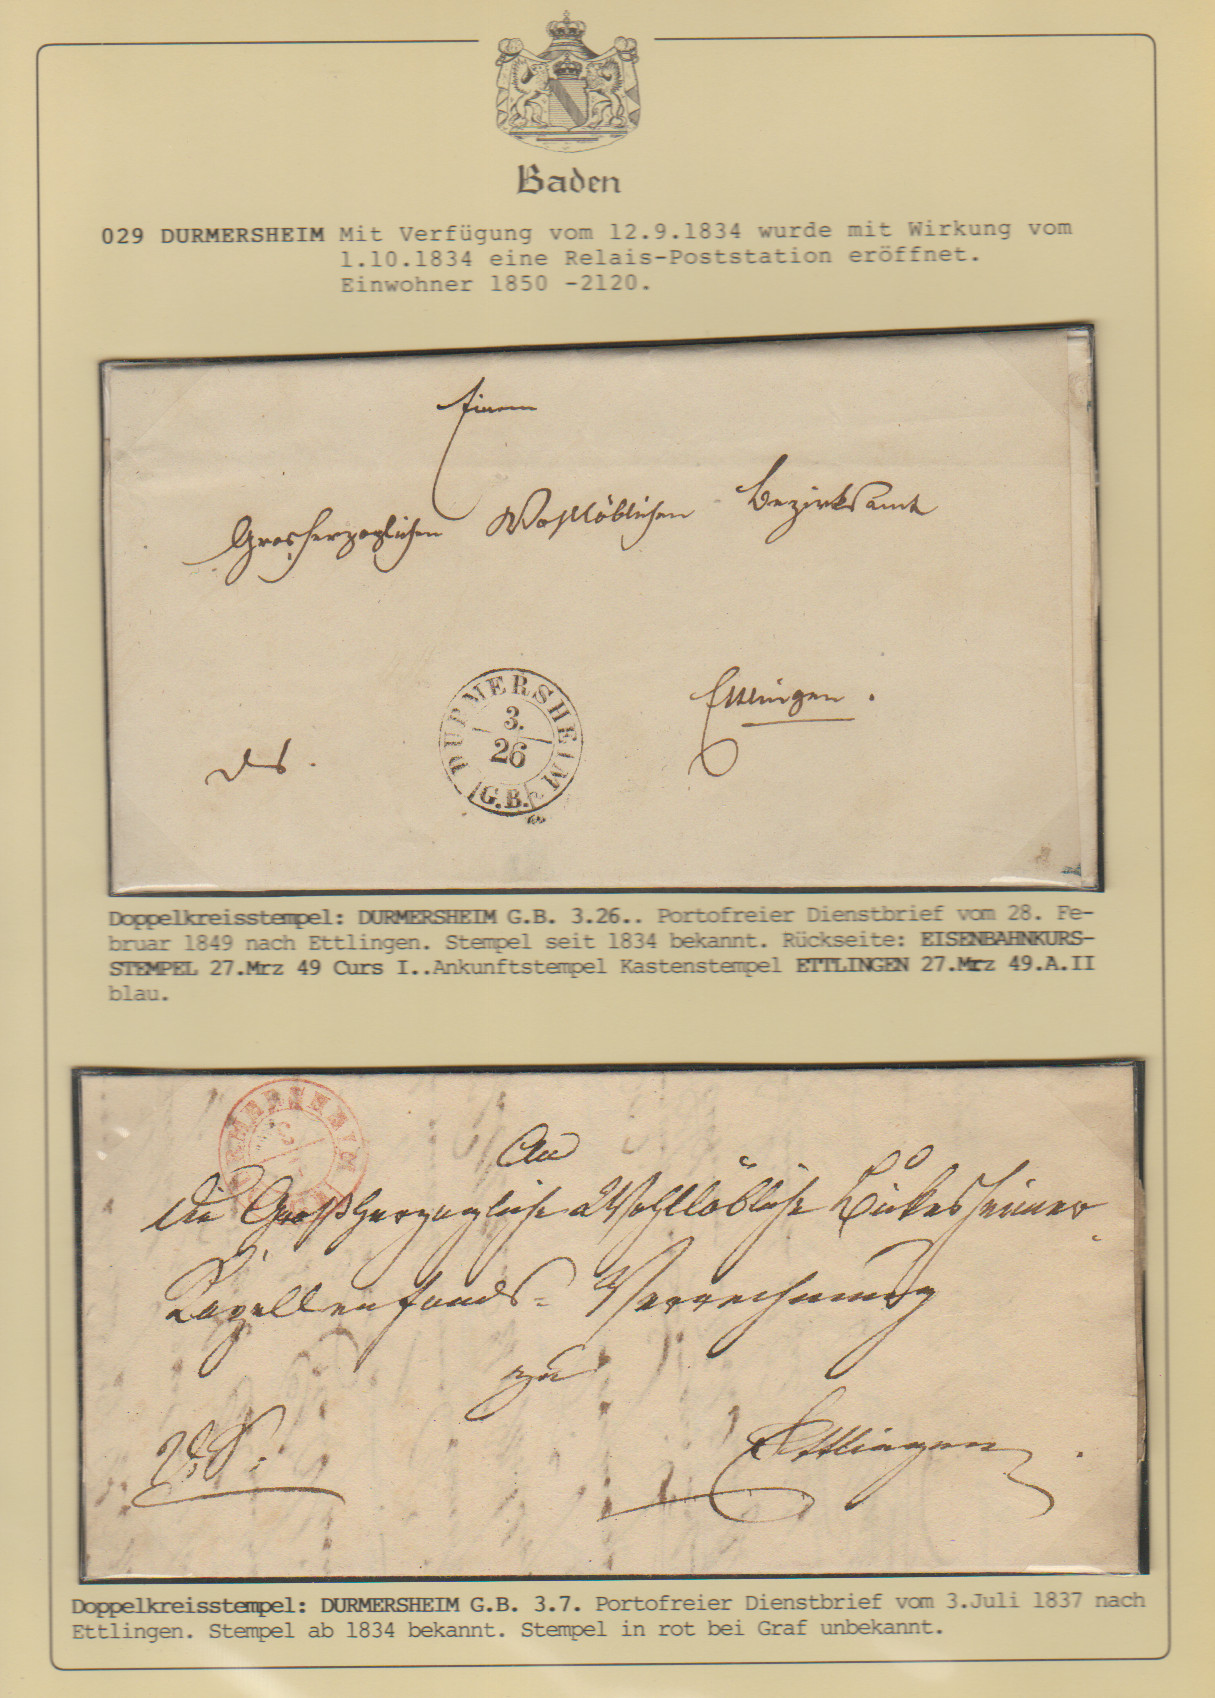 Baden
029 DURMERSHEIM Mit Verfügung vom 12.9.1834 wurde mit Wirkung vom
1.10.1834 eine Relais-Poststation eröffnet.
Einwohner 1850 -2120.
Einem
Grosherzoglichen Wohllöblichen Bezirksamt
DURMERSHEIM
3.
26
G.B.
Ettlingen.
Doppelkreisstempel: DURMERSHEIM G.B. 3.26.. Portofreier Dienstbrief vom 28. Fe-
bruar 1849 nach Ettlingen. Stempel seit 1834 bekannt. Rückseite: EISENBAHNKURS-
STEMPEL 27.Mrz 49 Curs I..Ankunftstempel Kastenstempel ETTLINGEN 27.Mrz 49.A.II
blau.
An
die Großherzogliche Wohllöbliche Bickesheimer
Kapellenfonds-Verrechnung
zu
Ettlingen.
Doppelkreisstempel: DURMERSHEIM G.B. 3.7. Portofreier Dienstbrief vom 3.Juli 1837 nach
Ettlingen. Stempel ab 1834 bekannt. Stempel in rot bei Graf unbekannt.